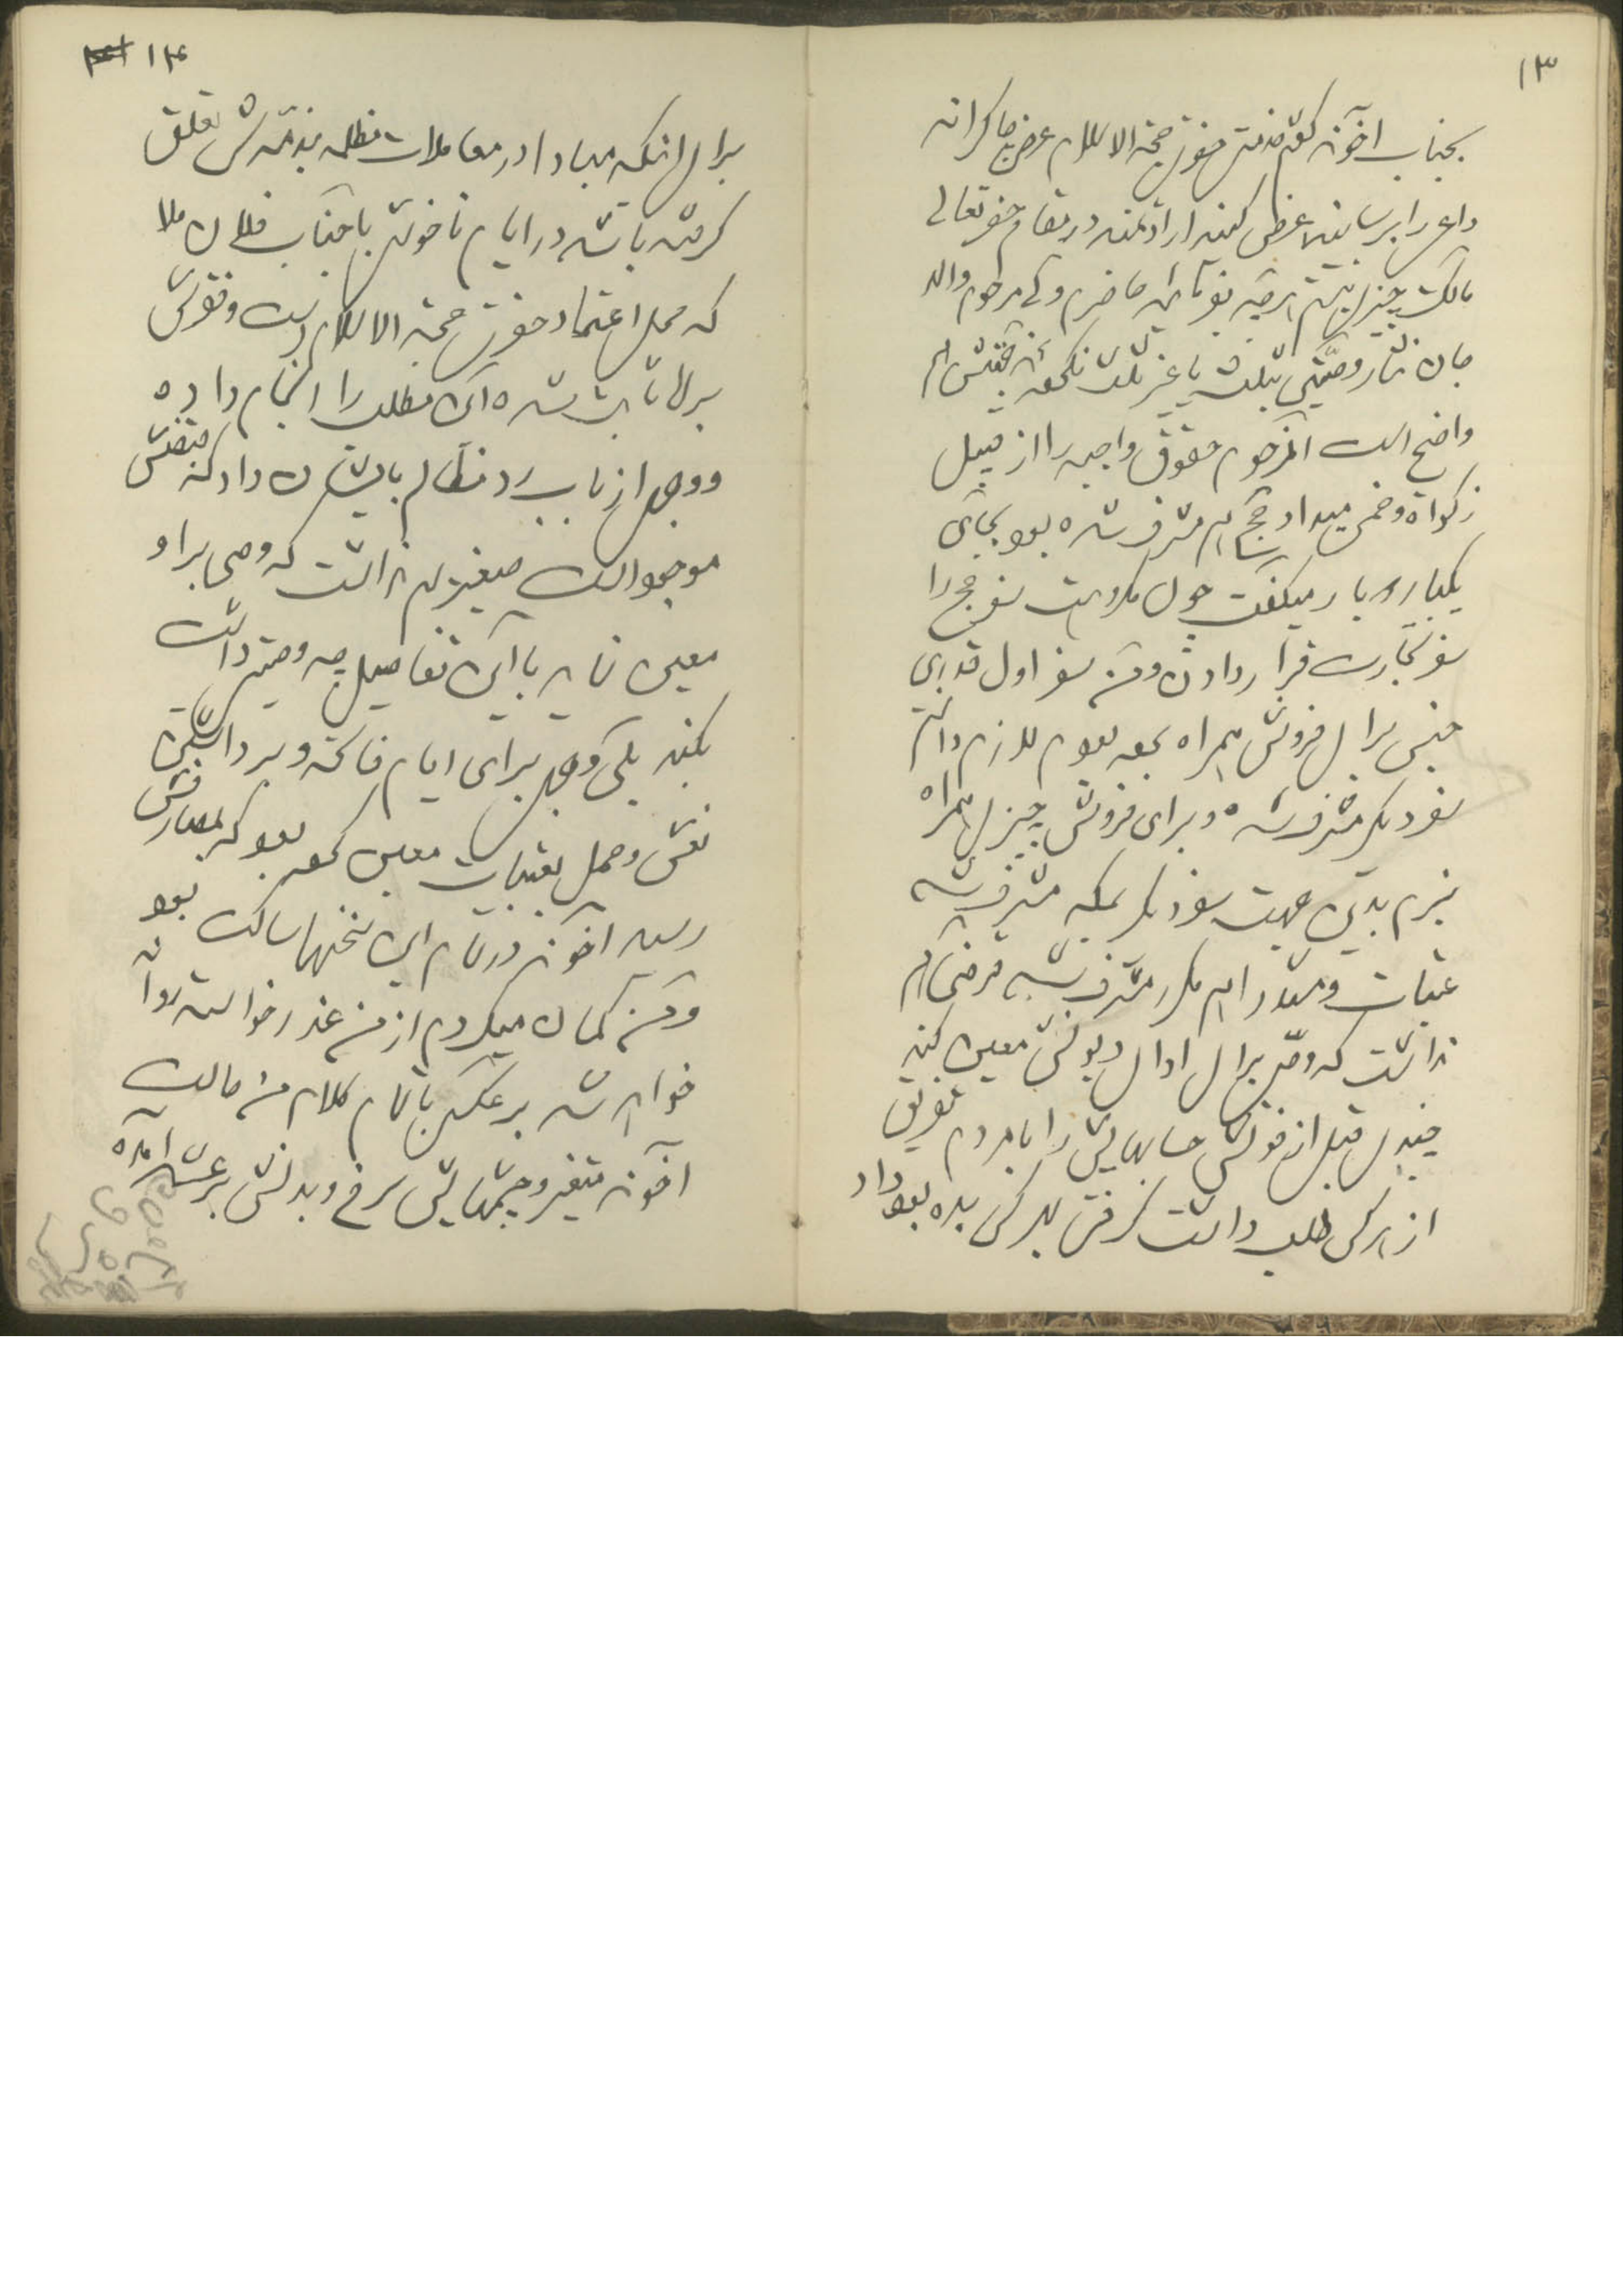 ۱۳
بجناب آخوند گفتم خدمت حضرت حجة الاسلام عرض چاکرانه
داعی را برسانید عرض کنید ارادتمند در مقام حضرتعالی
مالک چیزی نیستم هرچه بفرمائید حاضرم ولی مرحوم والد
جان نثار وصیتی بثلث یا غیر ثلث نکرده
واضح است آنمرحوم حقوق واجبه را از قبیل
زکواة و خمس میداد حج هم مشرف شده بود بجای
یکبار دو بار میگفت چون مکروه است سفر حج را
سفر تجارت قرار دادن و من سفر اول قدری
جنس برای فروش همراه برده بودم لازم دانستم
سفر دیگر مشرف شده و برای فروش چیزی همراه
نبرم بدین جهت سفر دیگر بمکه مشرف شد
عتبات و مشهد را هم مکرر مشرف شد قرضی هم
نداشت که وصی برای ادای دیونش معین کند
چندی قبل از فوتش حسابهایش را با مردم تفریق
از هر کس طلب داشت گرفت بهر کس بده بود داد
۱۴
برای اینکه مبادا در معاملات مظلمه بذمه‌اش تعلق
گرفته باشد در ایام ناخوشی با جناب فلان ملا
که محل اعتماد حضرت حجة الاسلام است و تقوایش
بر ما ثابت شده این مطلب را انجام داده
و وجهی از باب رد مظالم بایشان داد که قبضش
موجود است صغیر هم نداشت که وصی بر او
معین نماید با این تفاصیل چه وصیتی داشت
بکند بلی وجهی برای ایام فاتحه و برداشتن
نعش و حمل بعتبات معین کرده بود که بمصارفش
رسید آخوند در تمام این سخنها ساکت بود
و من گمان میکردم از من عذر خواسته روانه
خواهد شد برعکس باتمام کلام من حالت
آخوند متغیر و چشمهایش سرخ و بدنش برعشه آمده